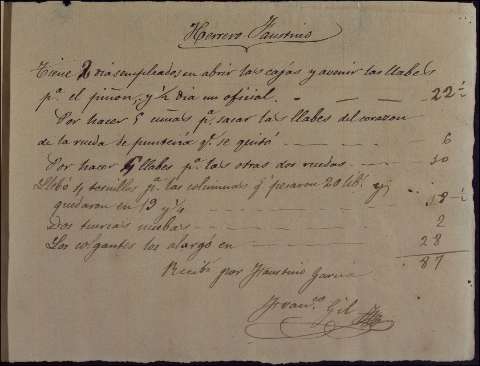 Herrero Faustino
Tiene 2 dias empleados en abrir las cajas y avenir las llabes
pª. el piñon, y ½ dia un oficial. 22 ½
Por hacer 5 cuñas pª. sacar las llabes del corazon
de la rueda de punteria qᵉ. se quitó 6
Por hacer 4 llabes pª. las otras dos ruedas 10
Llebó 4 tornillos pª. las columnas qᵉ pesaron 20 lib. y
quedaron en 19 y ¼ 18 ½
Dos tuercas nuebas 2
Los colgantes los alargó en 28
87
Recibí por Faustino Garcia
Franᶜᵒ. Gil